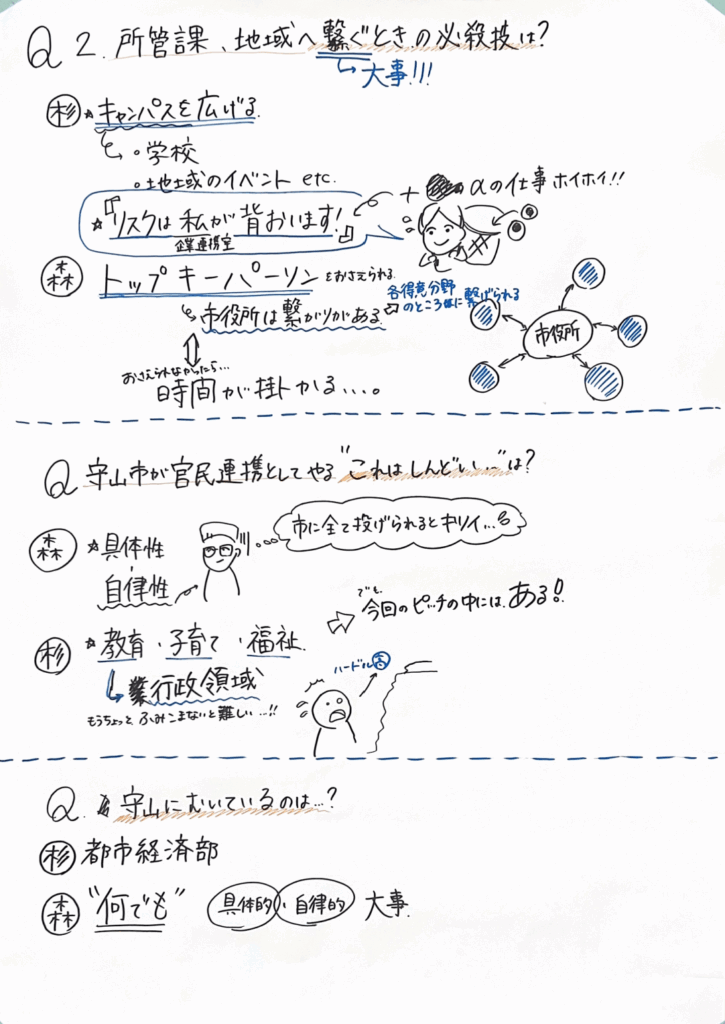 Q 2. 所管課、地域へ繋ぐときの必殺技は?
大事!!!
杉 ☆キャンパスを広げる
・学校
・地域のイベント etc.
+αの仕事ホイホイ!!
☆『リスクは私が背おいます!』
企業連携室
森 トップキーパーソンをおさえられる
市役所は繋がりがある
各得意分野
のところ に繋げられる
市役所
おさえられなかったら…
時間が掛かる…。
Q 守山市が官民連携としてやる"これはしんどい…"は?
市に全て投げられるとキツイ…
森 ☆具体性
自律性
でも、
今回のピッチの中には、ある!!
杉 ☆教育・子育て・福祉
ハードル高
行政領域
もうちょっと、ふみこまないと難しい…!!
Q. 守山にむいているのは…?
杉 都市経済部
森 "何でも" 具体的・自律的 大事